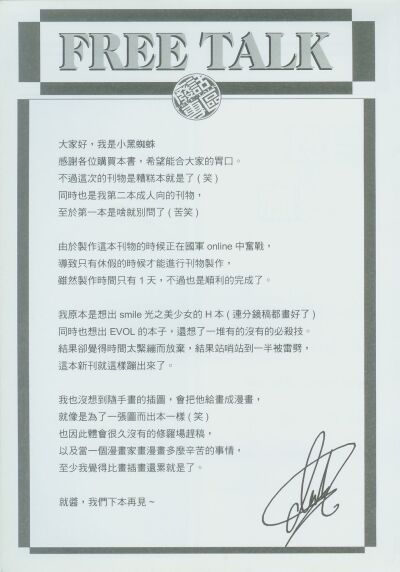 FREE TALK
大家好，我是小黑蜘蛛
感謝各位購買本書，希望能合大家的胃口。
不過這次的刊物是糟糕本就是了 ( 笑 )
同時也是我第二本成人向的刊物，
至於第一本是啥就別問了 ( 苦笑 )
由於製作這本刊物的時候正在國軍 online 中奮戰，
導致只有休假的時候才能進行刊物製作，
雖然製作時間只有 1 天，不過也是順利的完成了。
我原本是想出 smile 光之美少女的 H 本 ( 連分鏡稿都畫好了 )
同時也想出 EVOL 的本子，還想了一堆有的沒有的必殺技。
結果卻覺得時間太緊繃而放棄，結果站哨站到一半被雷劈，
這本新刊就這樣蹦出來了。
我也沒想到隨手畫的插圖，會把他給畫成漫畫，
就像是為了一張圖而出本一樣 ( 笑 )
也因此體會很久沒有的修羅場趕稿，
以及當一個漫畫家畫漫畫多麼辛苦的事情，
至少我覺得比畫插畫還累就是了。
就醬，我們下本再見 ~